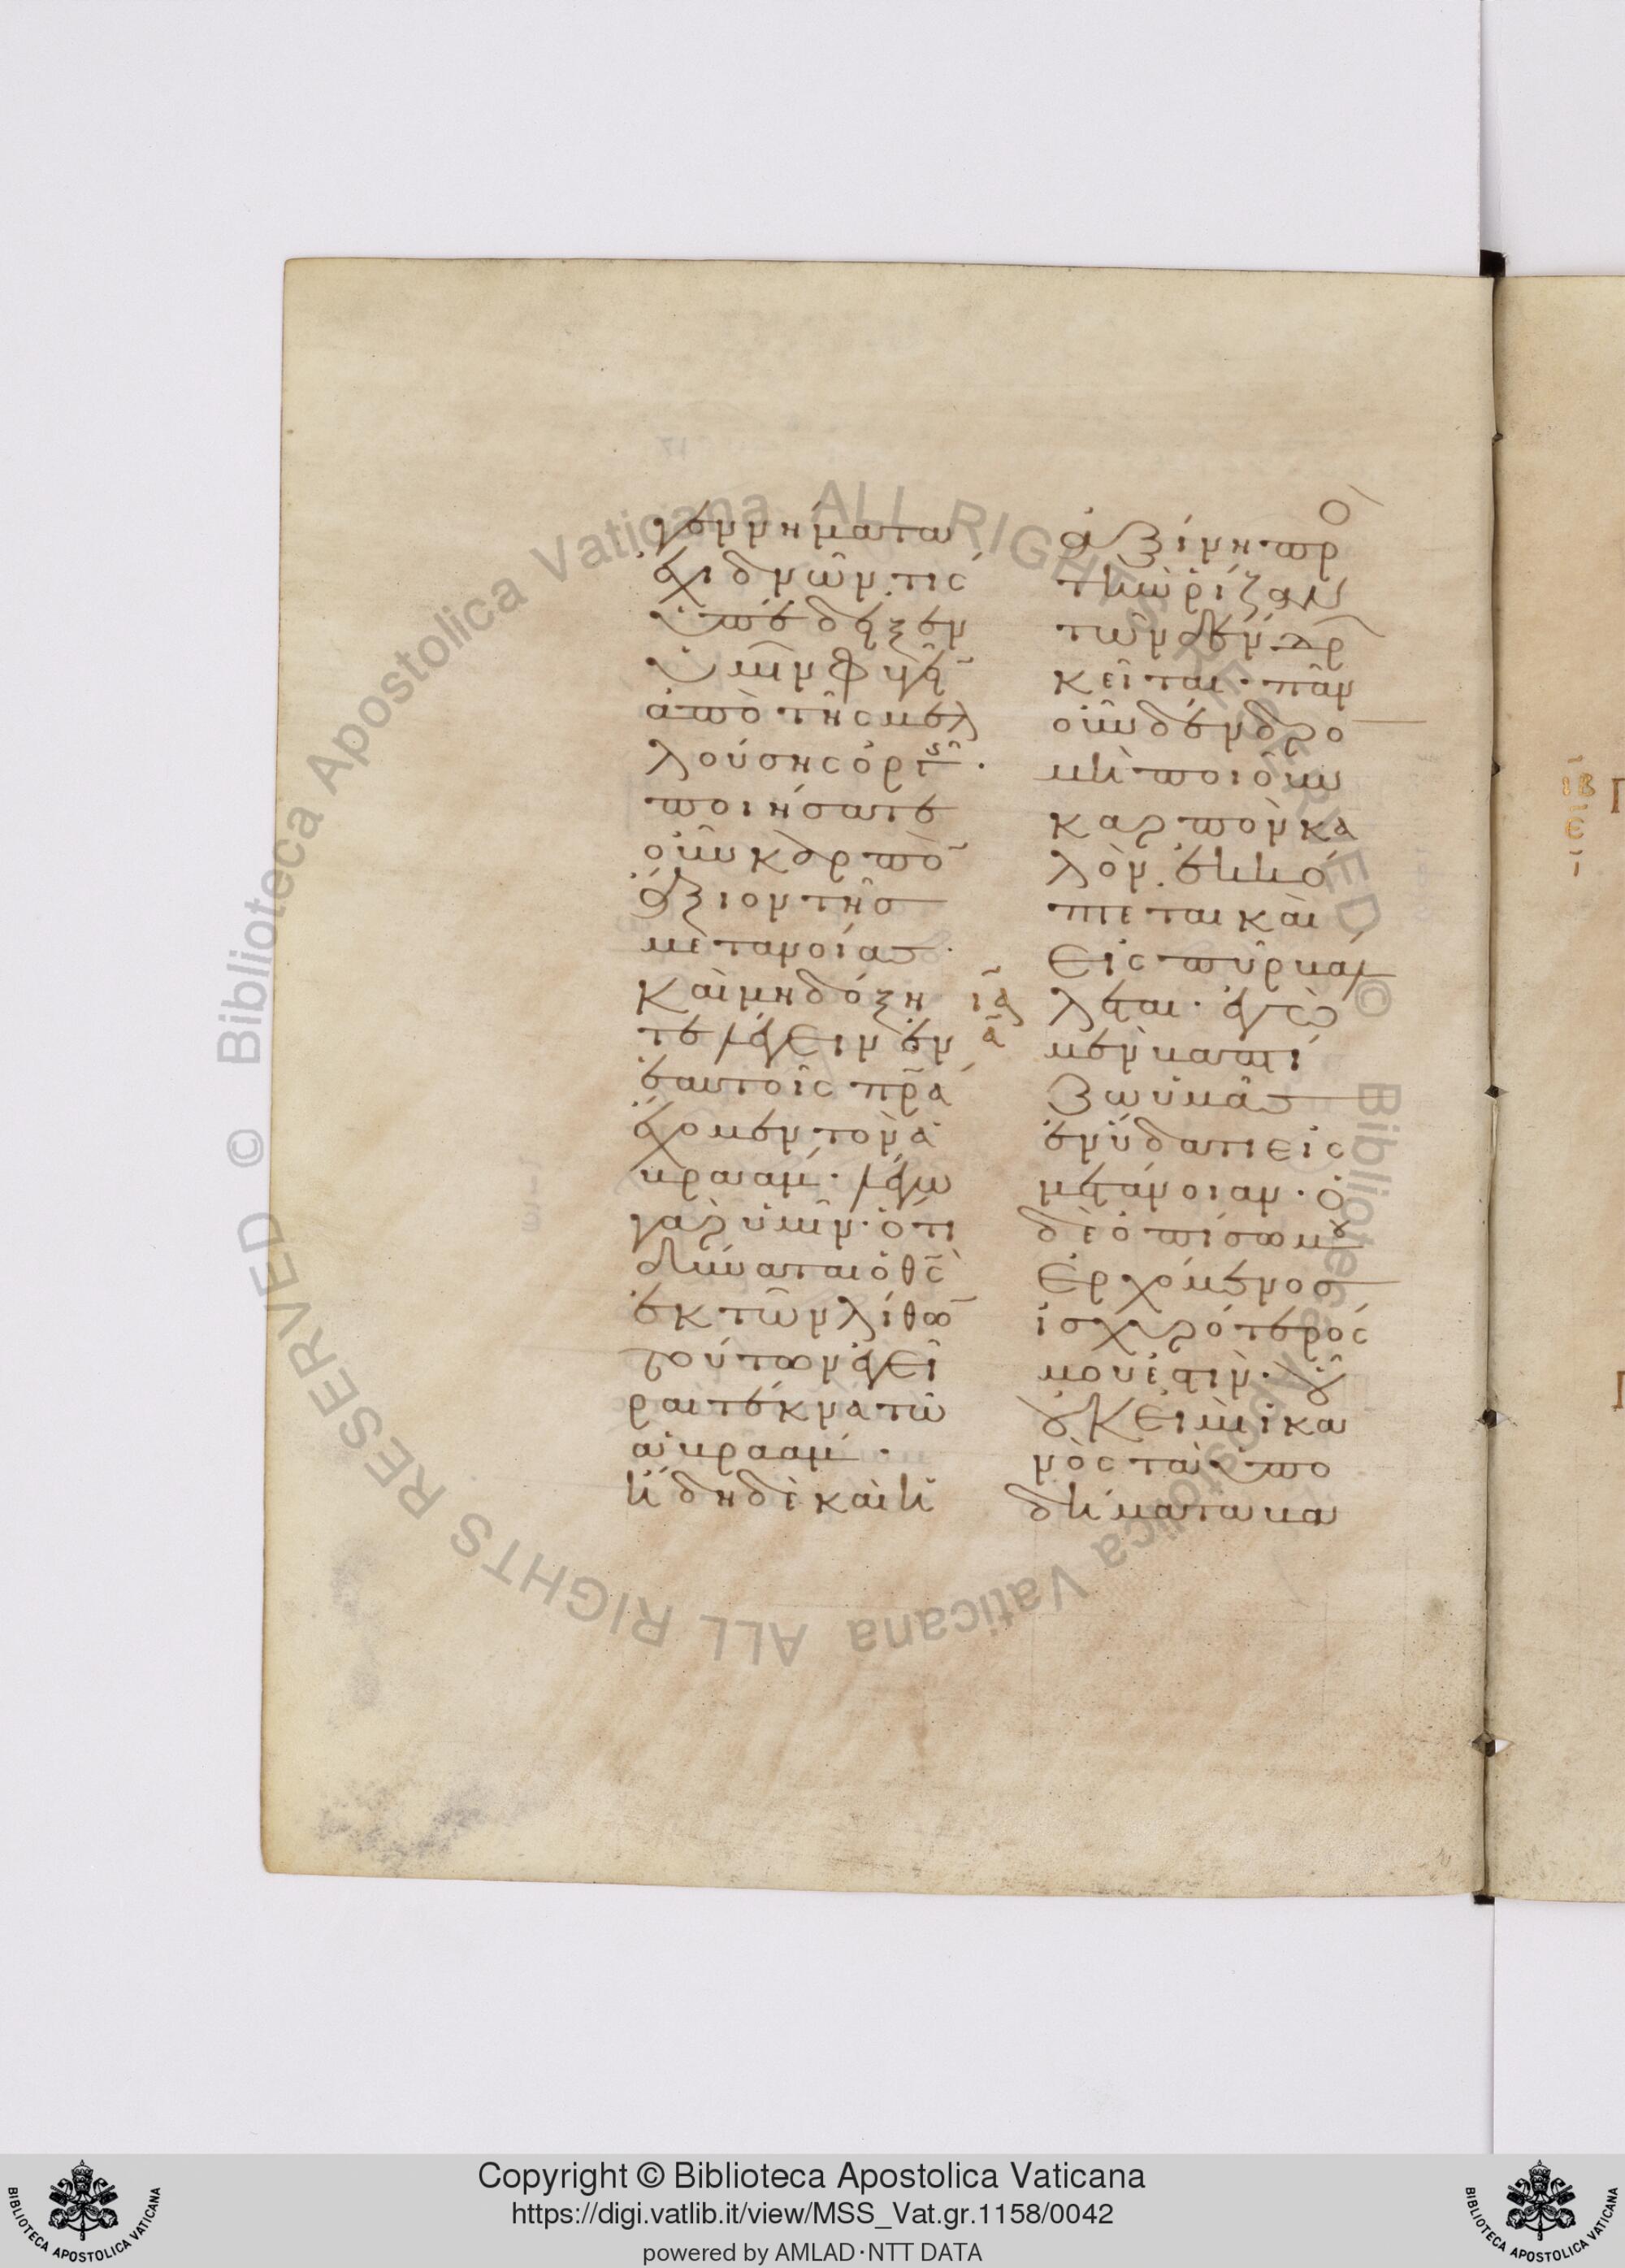 γεννήματα
ἐχιδνῶν· τίς
ὑπέδειξεν
ὑμῖν φυγεῖ̄
ἀπὸ τῆς μελ
λούσης ὀργῆς·
ποιήσατε
οὖν καρπὸ̄
ἄξιον τῆς
μετανοίας·
Καὶ μὴ δόξη
τε λέγειν ἐν
ἑαυτοῖς π̅ρ̅α
ἔχομεν τὸν ἀ
βραάμ· λέγω
γὰρ ὑμῖν· ὅτι
δύναται ὁ θ̅ς̅
ἐκ τῶν λίθω̄
τούτων ἐγεῖ
ραι τέκνα τῶ
ἀβραάμ·
ἤδη δὲ καὶ ἡ
ἀξίνη πρ
τὴν ῥίζαν
τῶν δένδρ
κεῖται· πᾶν
οὖν δένδρο
μὴ ποιοῦν
καρπὸν κα
λὸν· ἐκκό
πτεται καὶ
εἰς πῦρ βάλ
ια
λεται· ἐγὼ
α
μὲν βαπτί
ζω ὑμᾶς
ἐν ὕδατι εἰς
μετάνοιαν· ὁ
δὲ ὀπίσω μου
ἐρχόμενος
ἰσχυρότερός
μου ἐστιν· οὗ
οὐκ εἰμὶ ἱκα
νὸς τὰ ὑπο
δήματα βα
ιβ
ε
Copyright © Biblioteca Apostolica Vaticana
https://digi.vatlib.it/view/MSS_Vat.gr.1158/0042
powered by AMLAD·NTT DATA
BIBLIOTECA APOSTOLICA VATICANA
BIBLIOTECA APOSTOLICA VATICANA
© Biblioteca Apostolica Vaticana ALL RIGHTS RESERVED © Biblioteca Apostolica Vaticana ALL RIGHTS RESERVED